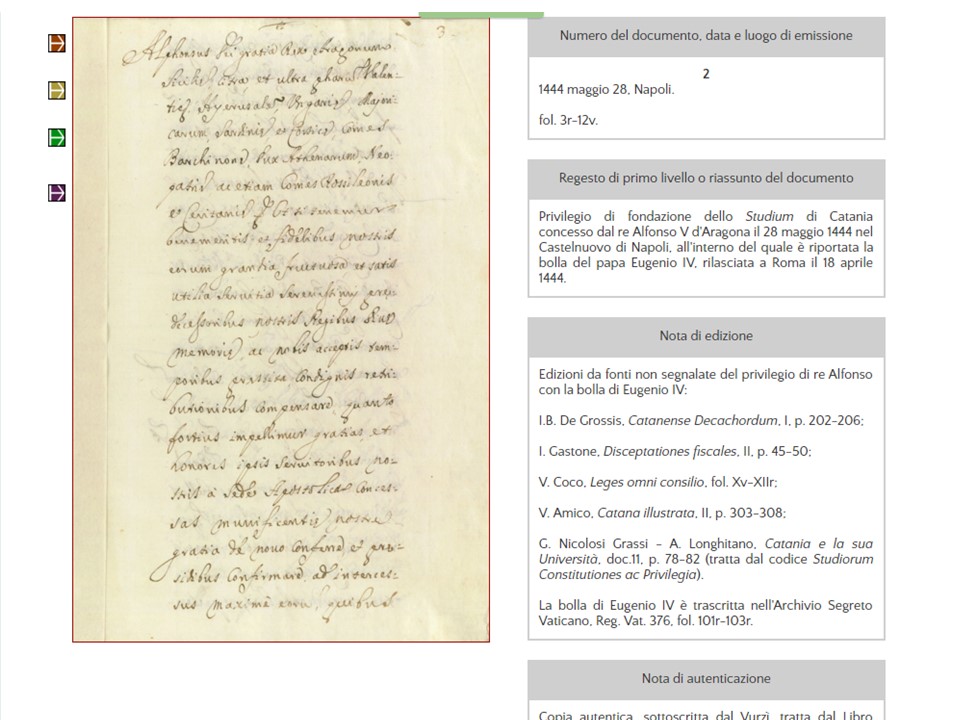 3
Alphonsus Dei gratia Rex Aragonum
Sicilię citra et ultra pharum Valen-
tię Hyerusalem Ungarię Majori-
carum, Sardinię, et Corsicę, Comes
Barchinonę, Dux Athenarum, Neo-
patrię ac etiam Comes Rossilionis
et Ceritanię
benemeritis et fidelibus nostris
eorum grandia fructuosa et satis
utilia Servitia Serenissimis prę-
decessoribus nostris Regibus
memorię, ac nobis acceptis tem-
poribus pręstita Condignis retri-
butionibus compensare, quanto
fortius impellimur gratias et
honores ipsis Servitoribus no-
stris a Sede Apostolica Conces-
sas munificentię nostrę
gratia de novo Conferre, et
Confirmare, ad interces-
sus maxime eorum, quibus
Numero del documento, data e luogo di emissione
2
1444 maggio 28, Napoli.
fol. 3r-12v.
Regesto di primo livello o riassunto del documento
Privilegio di fondazione dello Studium di Catania
concesso dal re Alfonso V d'Aragona il 28 maggio 1444 nel
Castelnuovo di Napoli, all'interno del quale è riportata la
bolla del papa Eugenio IV, rilasciata a Roma il 18 aprile
1444.
Nota di edizione
Edizioni da fonti non segnalate del privilegio di re Alfonso
con la bolla di Eugenio IV:
I.B. De Grossis, Catanense Decachordum, I, p. 202-206;
I. Gastone, Disceptationes fiscales, II, p. 45-50;
V. Coco, Leges omni consilio, fol. Xv-XIIr;
V. Amico, Catana illustrata, II, p. 303-308;
G. Nicolosi Grassi - A. Longhitano, Catania e la sua
Università, doc.11, p. 78-82 (tratta dal codice Studiorum
Constitutiones ac Privilegia).
La bolla di Eugenio IV è trascritta nell'Archivio Segreto
Vaticano, Reg. Vat. 376, fol. 101r-103r.
Nota di autenticazione
Copia autentica, sottoscritta dal Vurzì, tratta dal Libro